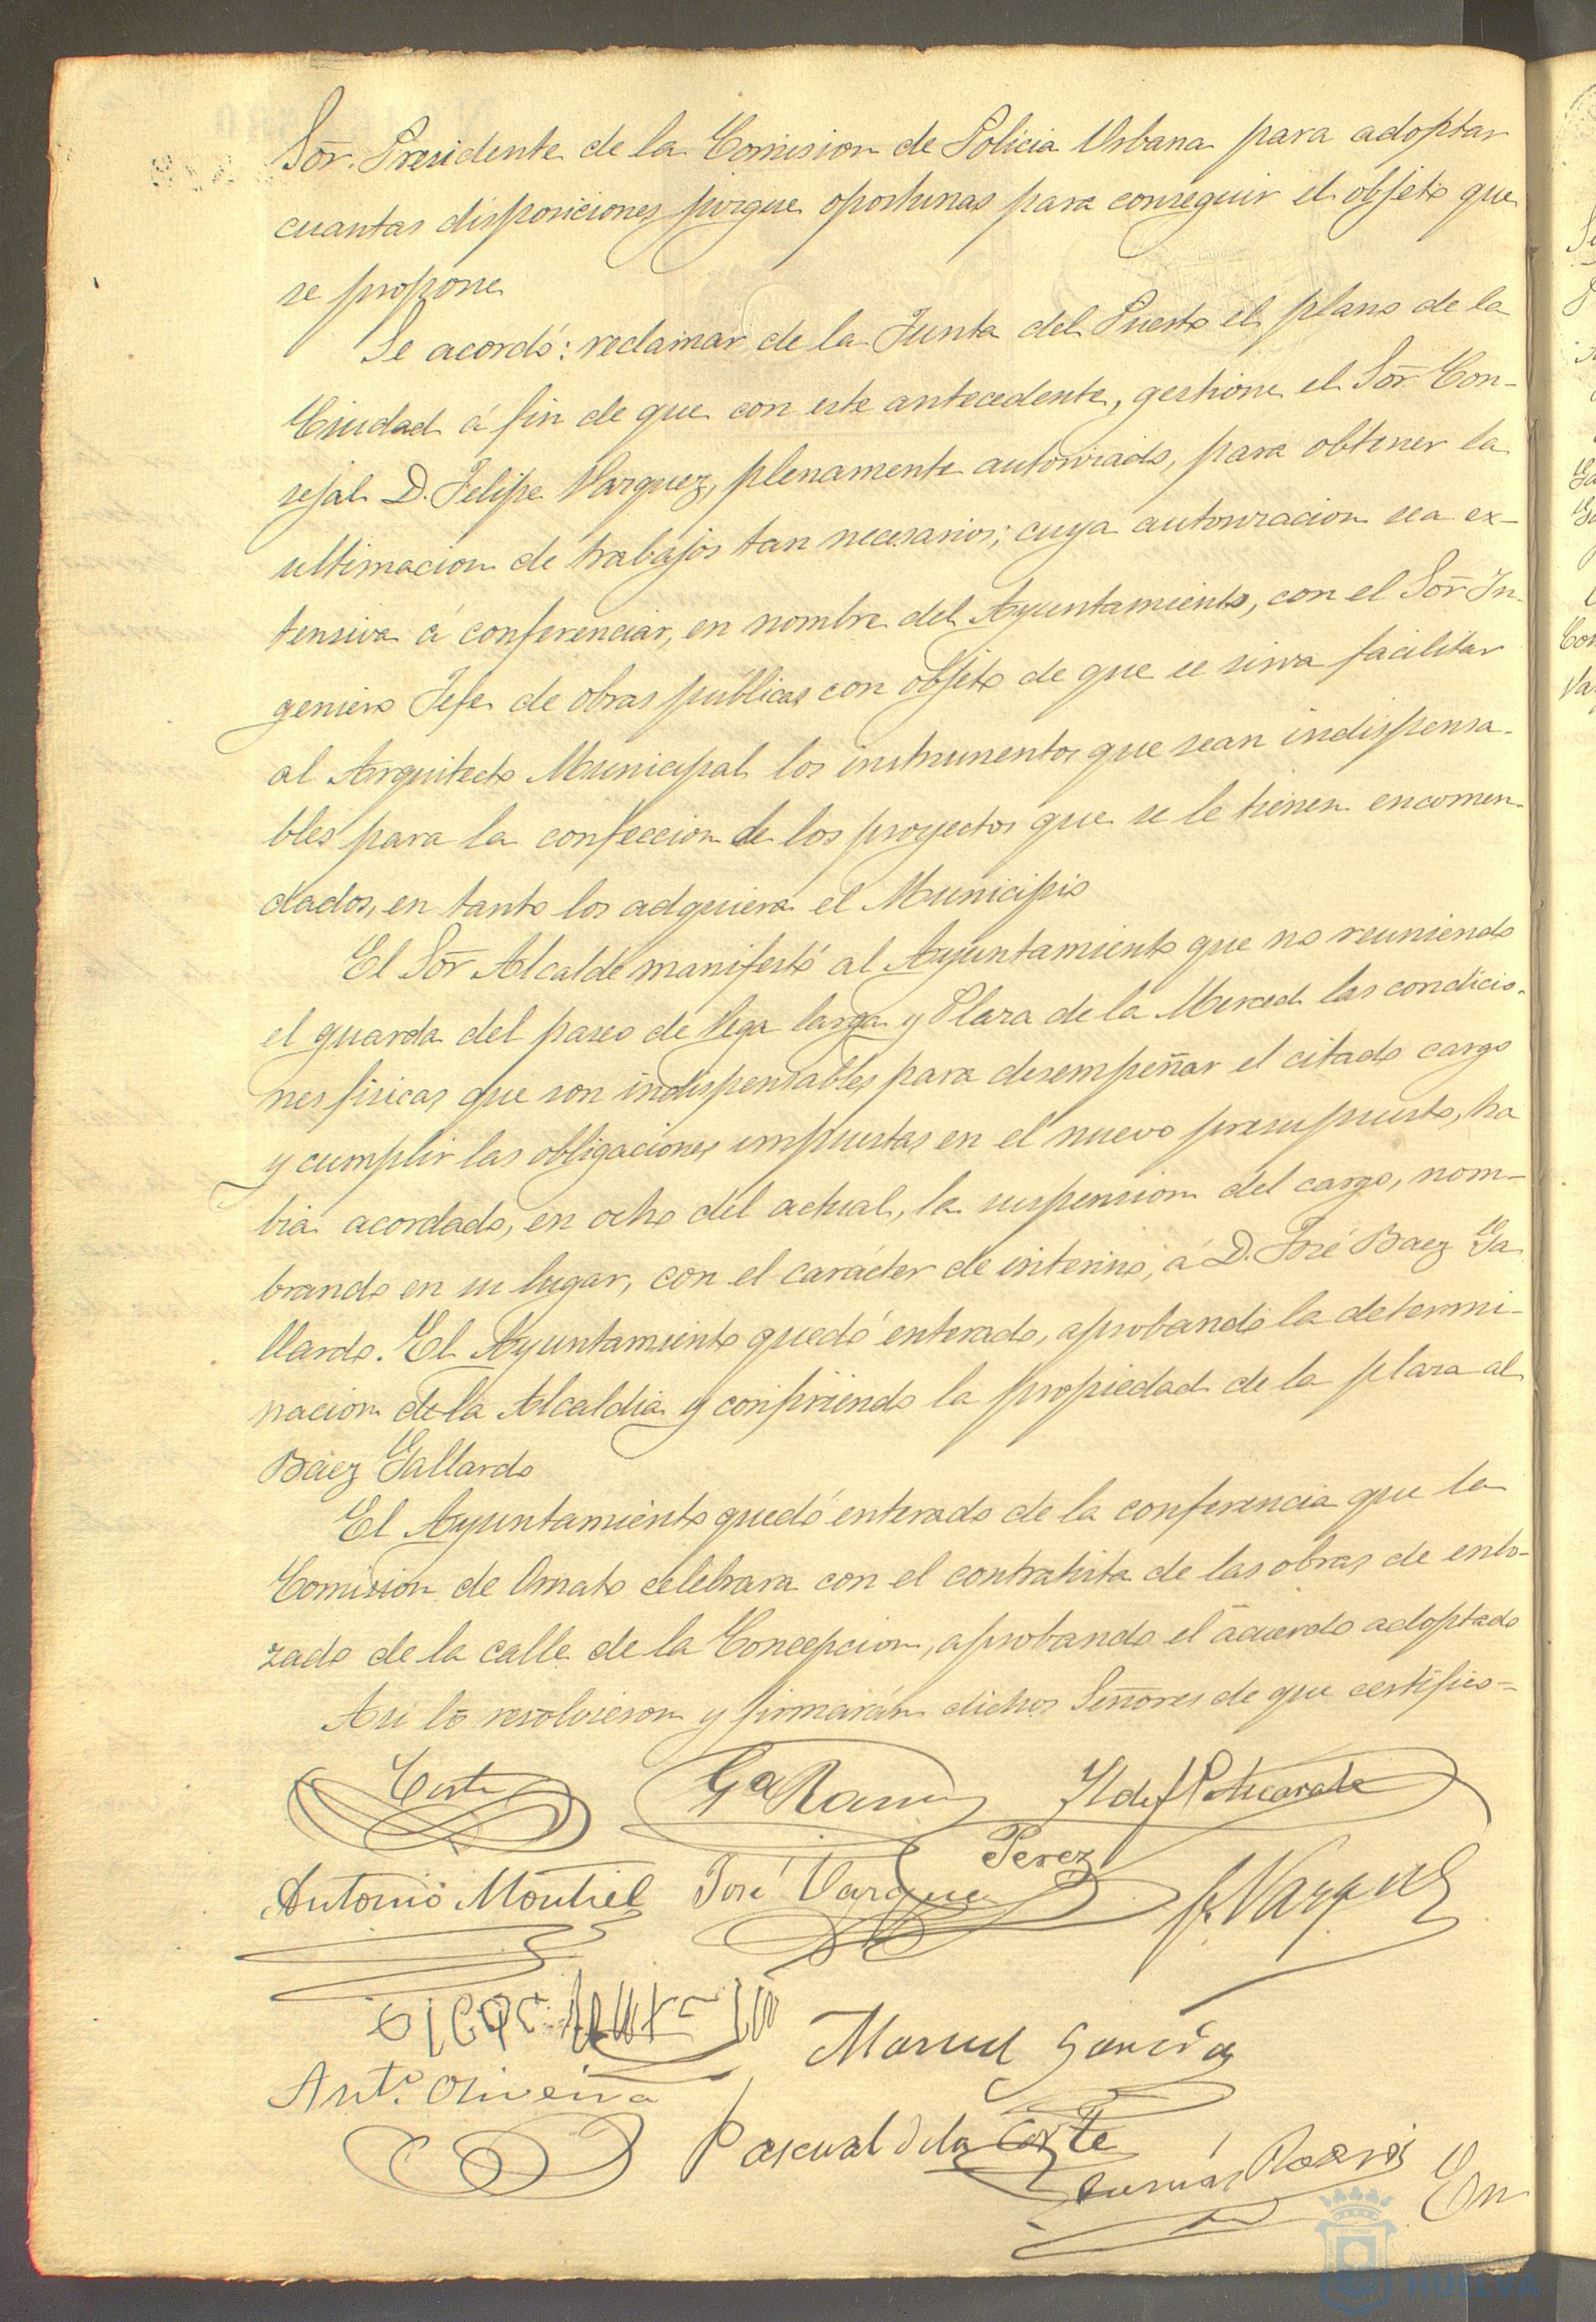 Sor. Presidente de la Comision de Policia Urbana para adoptar
cuantas disposiciones juzgue oportunas para conseguir el objeto que
se propone
Se acordó: reclamar de la Junta del Puerto el plano de la
Ciudad á fin de que con este antecedente, gestione el Sor Con-
sejal D. Felipe Vazquez, plenamente autorizado, para obtener la
ultimacion de trabajos tan necesarios; cuya autorizacion sea ex-
tensiva á conferenciar, en nombre del Ayuntamiento, con el Sor In-
geniero Jefe de obras públicas con objeto de que se sirva facilitar
al Arquitecto Municipal los instrumentos que sean indispensa-
bles para la confeccion de los proyectos que se le tienen encomen-
dados, en tanto los adquiera el Municipio
El Sor Alcalde manifestó al Ayuntamiento que no reuniendo
el guarda del paseo de Vega larga y Plaza de la Merced las condicio-
nes fisicas que son indispensables para desempeñar el citado cargo
y cumplir las obligaciones impuestas en el nuevo presupuesto, ha
bia acordado, en ocho del actual, la suspension del cargo, nom-
brando en su lugar, con el carácter de interino, á D. José Baez Ga
llardo. El Ayuntamiento quedó enterado, aprobando la determi-
nacion de la Alcaldia y confiriendo la propiedad de la plaza al
Báez Gallardo
El Ayuntamiento quedó enterado de la conferencia que la
Comision de Ornato celebrara con el contratista de las obras de enlo-
zado de la calle de la Concepcion, aprobando el acuerdo adoptado
Asi lo resolvieron y firmarán dichos Señores de que certifico=
Corte Ga Ramir Ildef
Perez
Antonio Montiel José Vazquez F. Vazquez
Manuel Garcia
Anto. Oliveira
Pascual de la Corte
En
HUELVA